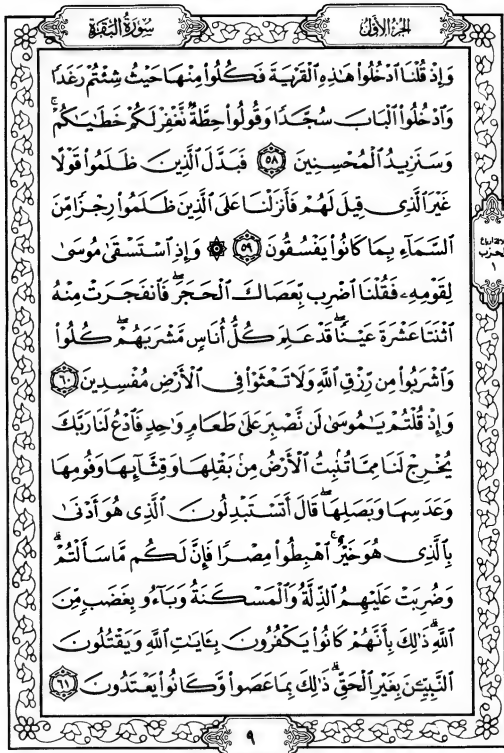 سُورَةُ البَقَرَةِ
الجُزءُ الأَوَّلُ
وَإِذْ قُلْنَا ٱدْخُلُوا۟ هَـٰذِهِ ٱلْقَرْيَةَ فَكُلُوا۟ مِنْهَا حَيْثُ شِئْتُمْ رَغَدًا
وَٱدْخُلُوا۟ ٱلْبَابَ سُجَّدًا وَقُولُوا۟ حِطَّةٌ نَّغْفِرْ لَكُمْ خَطَـٰيَـٰكُمْ ۚ
وَسَنَزِيدُ ٱلْمُحْسِنِينَ ٥٨ فَبَدَّلَ ٱلَّذِينَ ظَلَمُوا۟ قَوْلًا
غَيْرَ ٱلَّذِى قِيلَ لَهُمْ فَأَنزَلْنَا عَلَى ٱلَّذِينَ ظَلَمُوا۟ رِجْزًا مِّنَ
ٱلسَّمَآءِ بِمَا كَانُوا۟ يَفْسُقُونَ ٥٩ ۞ وَإِذِ ٱسْتَسْقَىٰ مُوسَىٰ
لِقَوْمِهِۦ فَقُلْنَا ٱضْرِب بِّعَصَاكَ ٱلْحَجَرَ ۖ فَٱنفَجَرَتْ مِنْهُ
ٱثْنَتَا عَشْرَةَ عَيْنًا ۖ قَدْ عَلِمَ كُلُّ أُنَاسٍ مَّشْرَبَهُمْ ۖ كُلُوا۟
وَٱشْرَبُوا۟ مِن رِّزْقِ ٱللَّهِ وَلَا تَعْثَوْا۟ فِى ٱلْأَرْضِ مُفْسِدِينَ ٦٠
وَإِذْ قُلْتُمْ يَـٰمُوسَىٰ لَن نَّصْبِرَ عَلَىٰ طَعَامٍ وَٰحِدٍ فَٱدْعُ لَنَا رَبَّكَ
يُخْرِجْ لَنَا مِمَّا تُنۢبِتُ ٱلْأَرْضُ مِنۢ بَقْلِهَا وَقِثَّآئِهَا وَفُومِهَا
وَعَدَسِهَا وَبَصَلِهَا ۖ قَالَ أَتَسْتَبْدِلُونَ ٱلَّذِى هُوَ أَدْنَىٰ
بِٱلَّذِى هُوَ خَيْرٌ ۚ ٱهْبِطُوا۟ مِصْرًا فَإِنَّ لَكُم مَّا سَأَلْتُمْ ۗ
وَضُرِبَتْ عَلَيْهِمُ ٱلذِّلَّةُ وَٱلْمَسْكَنَةُ وَبَآءُو بِغَضَبٍ مِّنَ
ٱللَّهِ ۗ ذَٰلِكَ بِأَنَّهُمْ كَانُوا۟ يَكْفُرُونَ بِـَٔايَـٰتِ ٱللَّهِ وَيَقْتُلُونَ
ٱلنَّبِيِّـۧنَ بِغَيْرِ ٱلْحَقِّ ۗ ذَٰلِكَ بِمَا عَصَوا۟ وَّكَانُوا۟ يَعْتَدُونَ ٦١
الحزب
١
٩